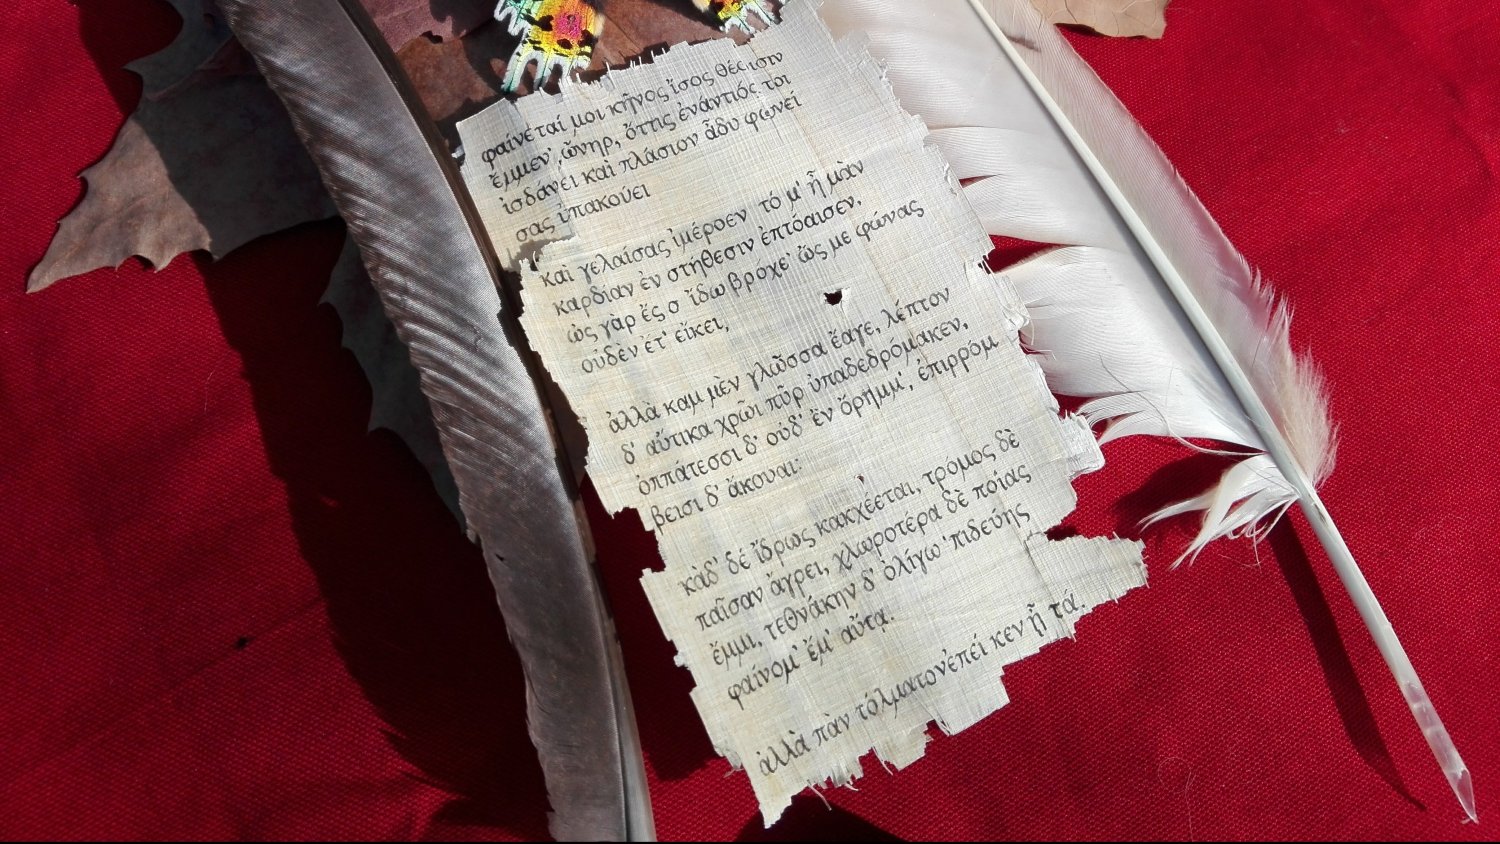 φαίνεταί μοι κῆνος ἴσος θέεισιν
ἔμμεν' ὤνηρ, ὄττις ἐνάντιός τοι
ἰσδάνει καὶ πλάσιον ἆδυ φωνεί
σας ὐπακούει
καὶ γελαίσας ἰμέροεν τό μ' ἦ μὰν
καρδίαν ἐν στήθεσιν ἐπτόαισεν,
ὠς γὰρ ἔς σ' ἴδω βρόχε' ὤς με φώνας
οὐδὲν ἔτ' εἴκει,
ἀλλὰ καμ μὲν γλῶσσα ἔαγε, λέπτον
δ' αὔτικα χρῶι πῦρ ὐπαδεδρόμακεν,
ὀππάτεσσι δ' οὐδ' ἒν ὄρημμ', ἐπιρρόμ
βεισι δ' ἄκουαι:
κὰδ' δέ ἴδρως κακχέεται, τρόμος δὲ
παῖσαν ἄγρει, χλωροτέρα δὲ ποίας
ἔμμι, τεθνάκην δ' ὀλίγω 'πιδεύης
φαίνομ' ἔμ' αὔτᾳ.
ἀλλὰ πὰν τόλματον ἐπεί κεν ἦ τά.